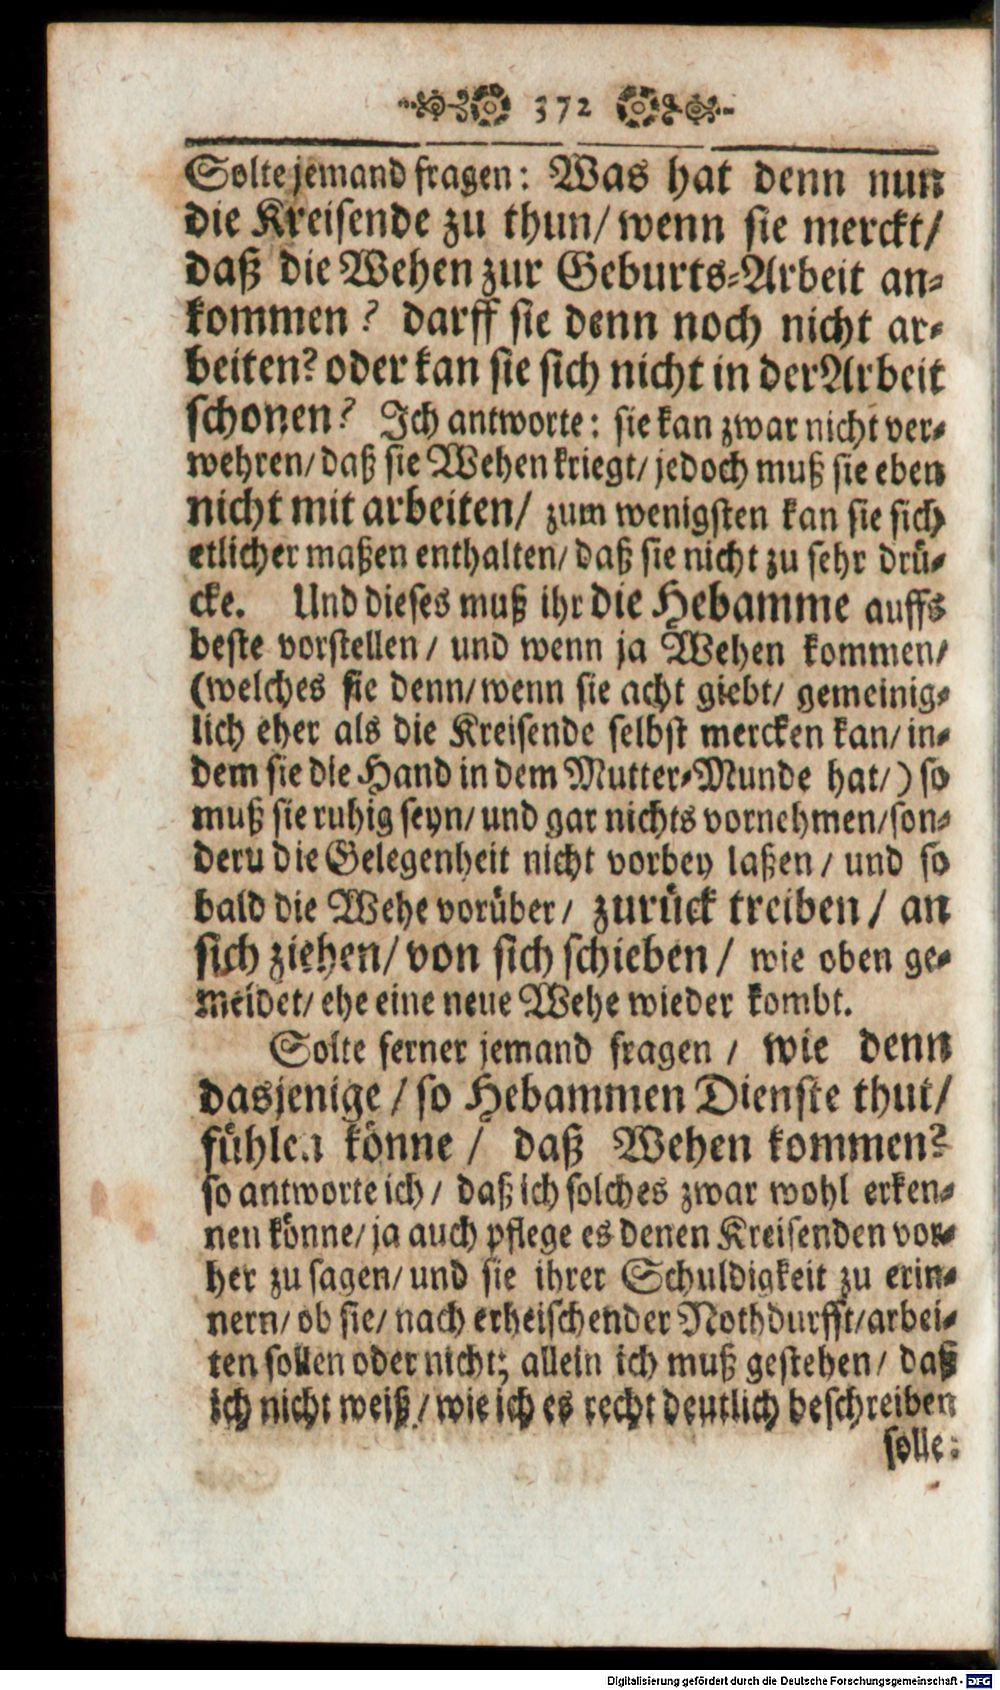 372
Solte jemand fragen: Was hat denn nun
die Kreisende zu thun/ wenn sie merckt/
daß die Wehen zur Geburts-Arbeit an-
kommen? darff sie denn noch nicht ar-
beiten? oder kan sie sich nicht in der Arbeit
schonen? Ich antworte: sie kan zwar nicht ver-
wehren/ daß sie Wehen kriegt/ jedoch muß sie eben
nicht mit arbeiten/ zum wenigsten kan sie sich
etlicher maßen enthalten/ daß sie nicht zu sehr drü-
cke. Und dieses muß ihr die Hebamme auffs
beste vorstellen/ und wenn ja Wehen kommen/
(welches sie denn/ wenn sie acht giebt/ gemeinig-
lich eher als die Kreisende selbst mercken kan/ in-
dem sie die Hand in dem Mutter-Munde hat/) so
muß sie ruhig seyn/ und gar nichts vornehmen/ son-
deru die Gelegenheit nicht vorbey laßen/ und so
bald die Wehe vorüber/ zurück treiben/ an
sich ziehen/ von sich schieben/ wie oben ge-
meldet/ ehe eine neue Wehe wieder kombt.
Solte ferner jemand fragen/ wie denn
dasjenige/ so Hebammen Dienste thut/
fühlen könne/ daß Wehen kommen?
so antworte ich/ daß ich solches zwar wohl erken-
nen könne/ ja auch pflege es denen Kreisenden vor-
her zu sagen/ und sie ihrer Schuldigkeit zu erin-
nern/ ob sie/ nach erheischender Nothdurfft/ arbei-
ten sollen oder nicht; allein ich muß gestehen/ daß
ich nicht weiß/ wie ich es recht deutlich beschreiben
solle:
Digitalisierung gefördert durch die Deutsche Forschungsgemeinschaft - DFG